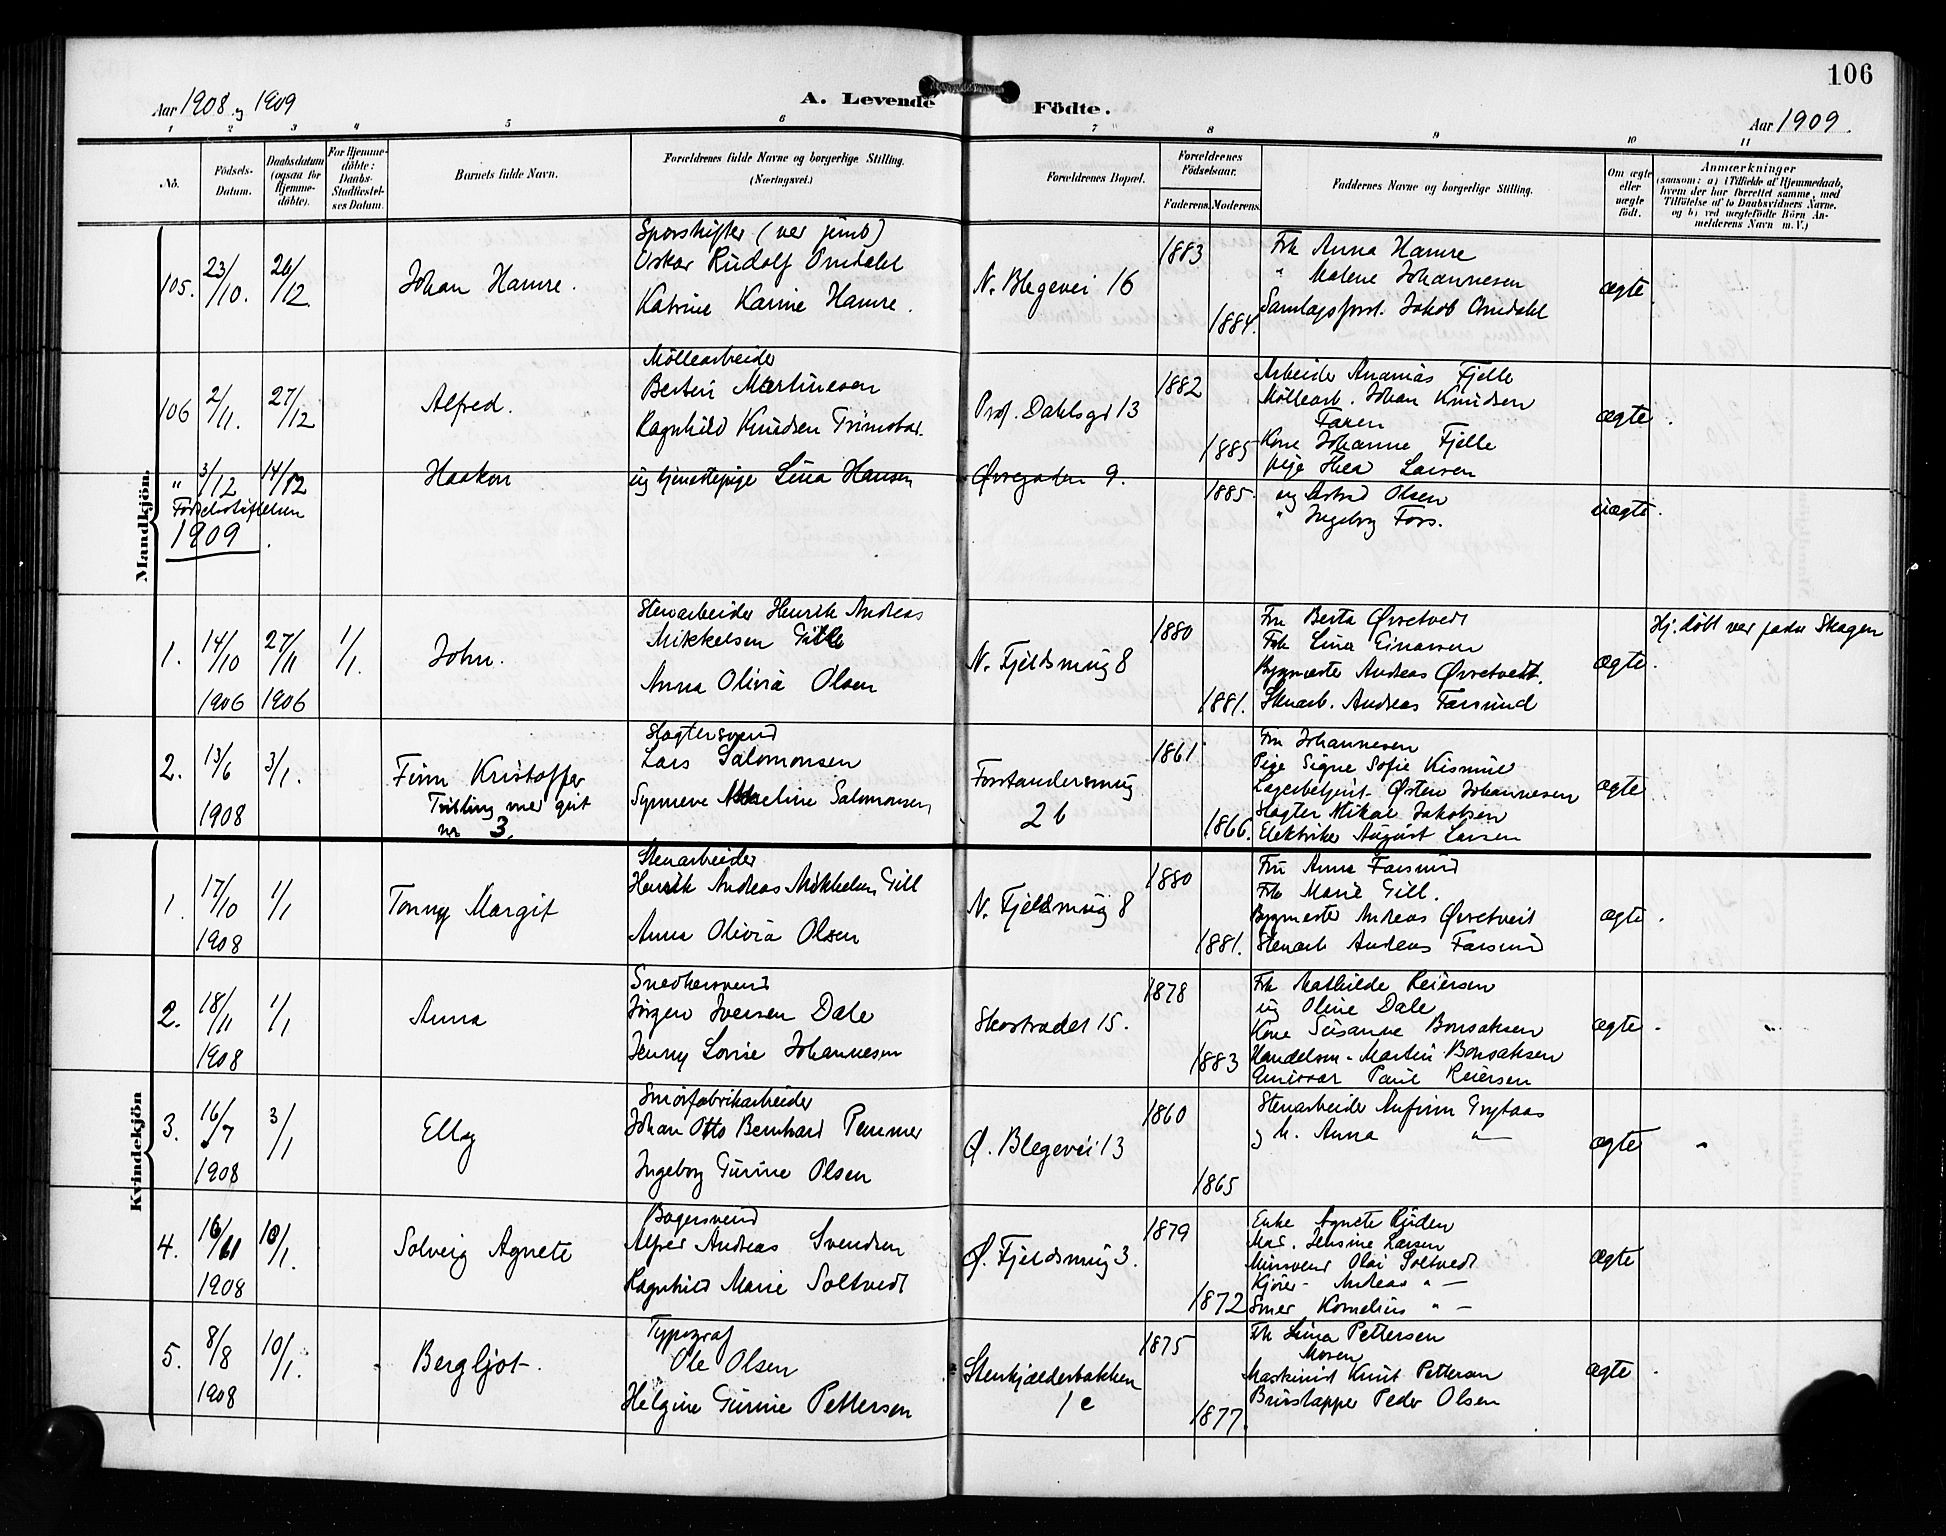 106
Aar 1908 og 1909
A. Levende Födte.
Aar 1909.
1 2 3 4 5 6 7 8 9 10 11
No.
Födsels-Datum.
Daabsdatum (ogsaa for Hjemme-döbte).
For Hjemme-döbte: Daabs-Stadfæstel-ses Datum.
Barnets fulde Navn.
Forældrenes fulde Navne og borgerlige Stilling. (Næringsvei.)
Forældrenes Bopæl.
Forældrenes Födselsaar.
Faderens. Moderens.
Faddernes Navne og borgerlige Stilling.
Om ægte eller uægte födt.
Anmærkninger
(saasom: a) i Tilfælde af Hjemmedaab,
hvem der har forrettet samme, med
Tilföielse af to Daabsvidners Navne.
og b) ved uægtefödte Börn An-
melderens Navn m. V.)
Mandkjön.
105. 23/10. 26/12 Johan Hamre.
Oskar Rudolf Omdahl
Katrine Karine Hamre.
N. Blegevei 16
1883
1884.
Frk Anna Hamre
" Malene Johannesen
Jakob Omdahl
ægte
106 2/11. 27/12 Alfred.
Möllearbeider
Martinesen
Ragnhild Knudsen
Prof. Dahlsgd 13
1882
1885
Arbeider Ananias Fjelle
Möllearb. Johan Knudsen
Faren
Kone Johanne Fjelle
Pige Thea Larsen
ægte.
" 3/12 14/12 Haakon
Födselsstiftelsen
ug tjenestepige Lina Hansen
Øvregaden 9.
1885.
ug Astrid Olsen
" Ingeborg Fors.
uægte.
1909
1. 14/10 1906 27/11 1906 1/1 John.
Stenarbeider Henrik Andreas
Mikkelsen Gill
Anna Olivia Olsen
N. Fjeldsmug 8
1880
1881.
Fru Berta Øvretvedt
Frk Lina Einarsen
Bygmester Andreas Øvretvedt.
Stenarb. Andreas Farsund
ægte.
Hj. döbt ver Skagen
2. 13/6 1908 3/1. Finn Kristoffer
Tvilling med
nr 3.
Slagtersvend
Lars Salomonsen
Salomonsen
Forstandersmug
2 b
1861
1866.
Fru Johannesen
Pige Signe Sofie Kismul
Lagerbetjent Østen Johannesen
Slagter Mikal Jakobsen
Elektriker August Larsen
ægte
Kvindekjön
1. 17/10 1908 1/1 Tonny Margit
Stenarbeider
Henrik Andreas Mikkelsen Gill
Anna Olivia Olsen
N. Fjeldsmug 8
1880
1881.
Fru Anna Farsund
Frk Marie Gill.
Bygmester Andreas Øvretveit
Stenarb Andreas Farsund
ægte.
2. 18/11 1908 1/1 Anna
Snedkersvend
Jörgen Iversen Dale
Jenny Lovise Johannesen
Skostrædet 15.
1878
1883
Frk Mathilde Reiersen
ug Oline Dale
Kone Susanne Bonsaksen
Handelsm. Martin Bonsaksen
Paul Reiersen
ægte.
3. 16/7 1908 3/1 Elly
Smörfabrikarbeider
Johan Otto Bernhard Pammer
Ingeborg Gurine Olsen
Ø. Blegevei 13
1860
1865
Stenarbeider Anfinn Grytaas
og h. Anna "
ægte
4. 16/11 1908 10/1. Solveig Agnete
Bagersvend
Alfred Andreas Svendsen
Ragnhild Marie Soltvedt
Ø. Fjeldsmug 3.
1879
1872
Enke Agnete Ruden
Mad. Jensine Larsen
Mursvend Olai Soltvedt
Kjörer Andreas "
Smed Kornelius "
ægte
5. 8/8 1908 10/1. Bergljot.
Typograf
Ole Olsen
Helgine Gurine Pettersen
Stenkjælderbakken
1 c
1875
1877.
Frk Lina Pettersen
Moren
Maskinist Knut Pettersen
Brustapper Peder Olsen
ægte